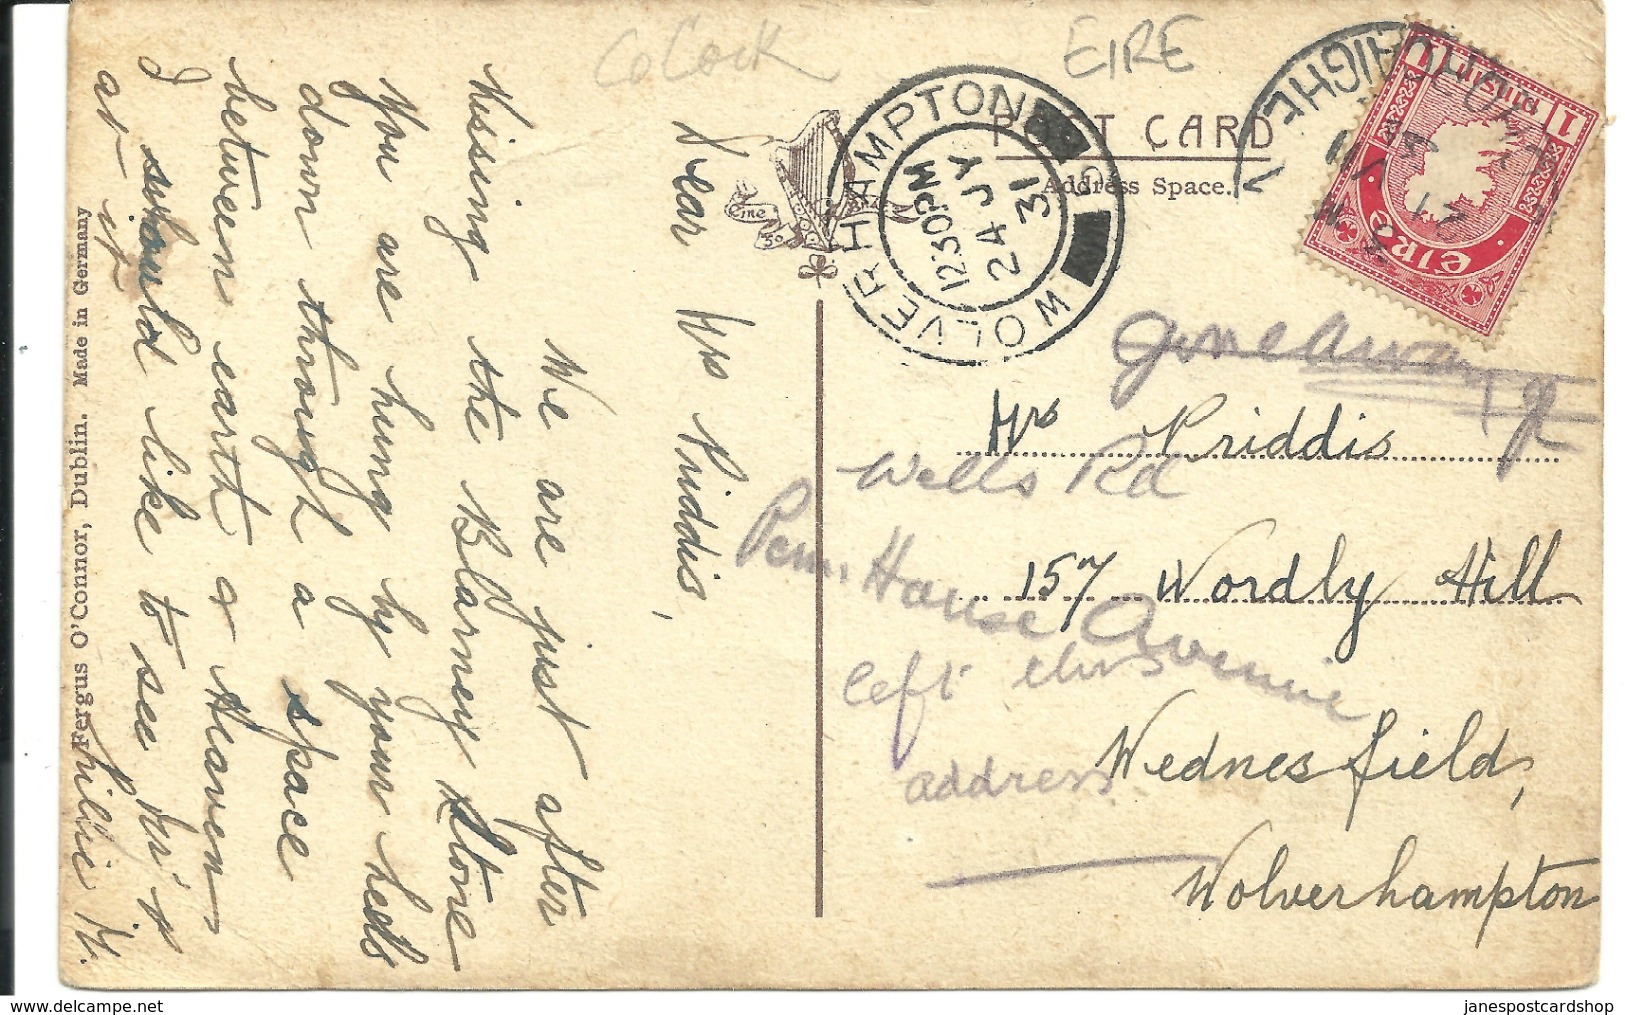 Co Cork
EIRE
POST CARD
Address Space.
WOLVERHAMPTON
1230PM
24 JY
31
1 pinn 1
éire
Gone Away
Mrs Priddis
Wells Rd
157 Wordly Hill
Penn House Avenue
left this
address
Wednesfield,
Wolverhampton
Dear Mrs Priddis,
We are just after
kissing the Blarney Stone
You are hung by your heels
down through a space
between earth & Heaven
I should like to see Mr's
at it
Philie H.
Fergus O'Connor, Dublin. Made in Germany
janespostcardshop